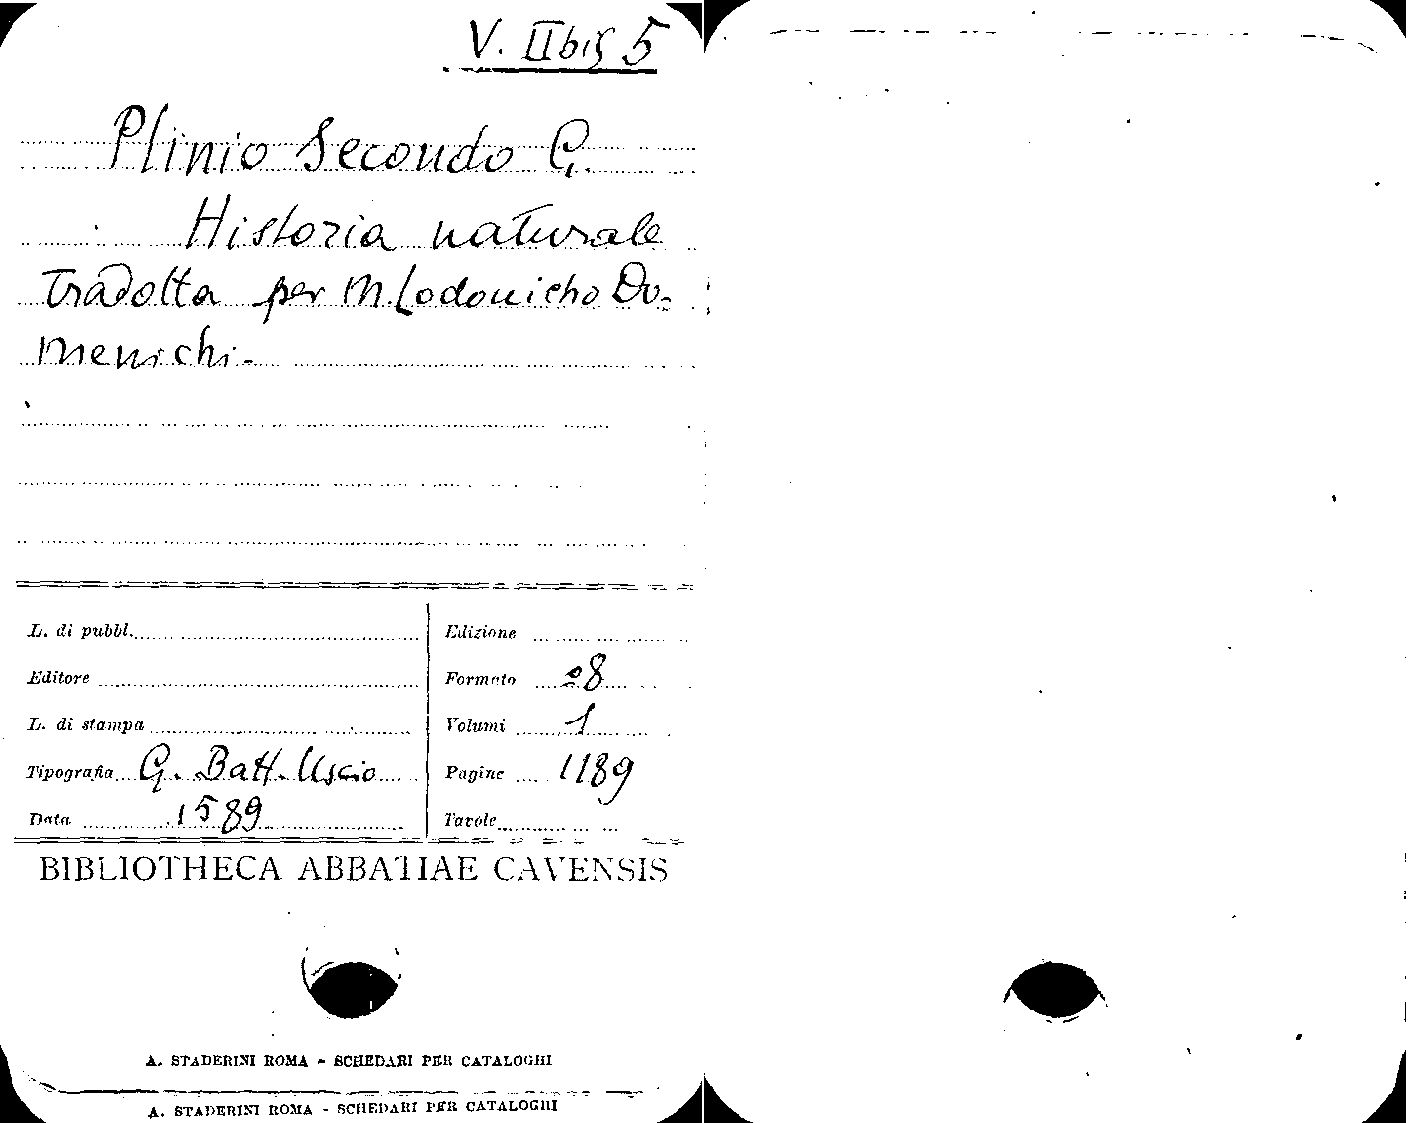 V. II bis 5
Plinio Secondo G.
Historia naturale
Tradotta per M. Lodouicho Do-
menichi.
L. di pubbl.
Edizione
Editore
Formato º8
L. di stampa
Volumi 1
Tipografia G. Batt. Uscio
Pagine 1189
Data 1589
Tavole
BIBLIOTHECA ABBATIAE CAVENSIS
A. STADERINI ROMA - SCHEDARI PER CATALOGHI
A. STADERINI ROMA - SCHEDARI PER CATALOGHI